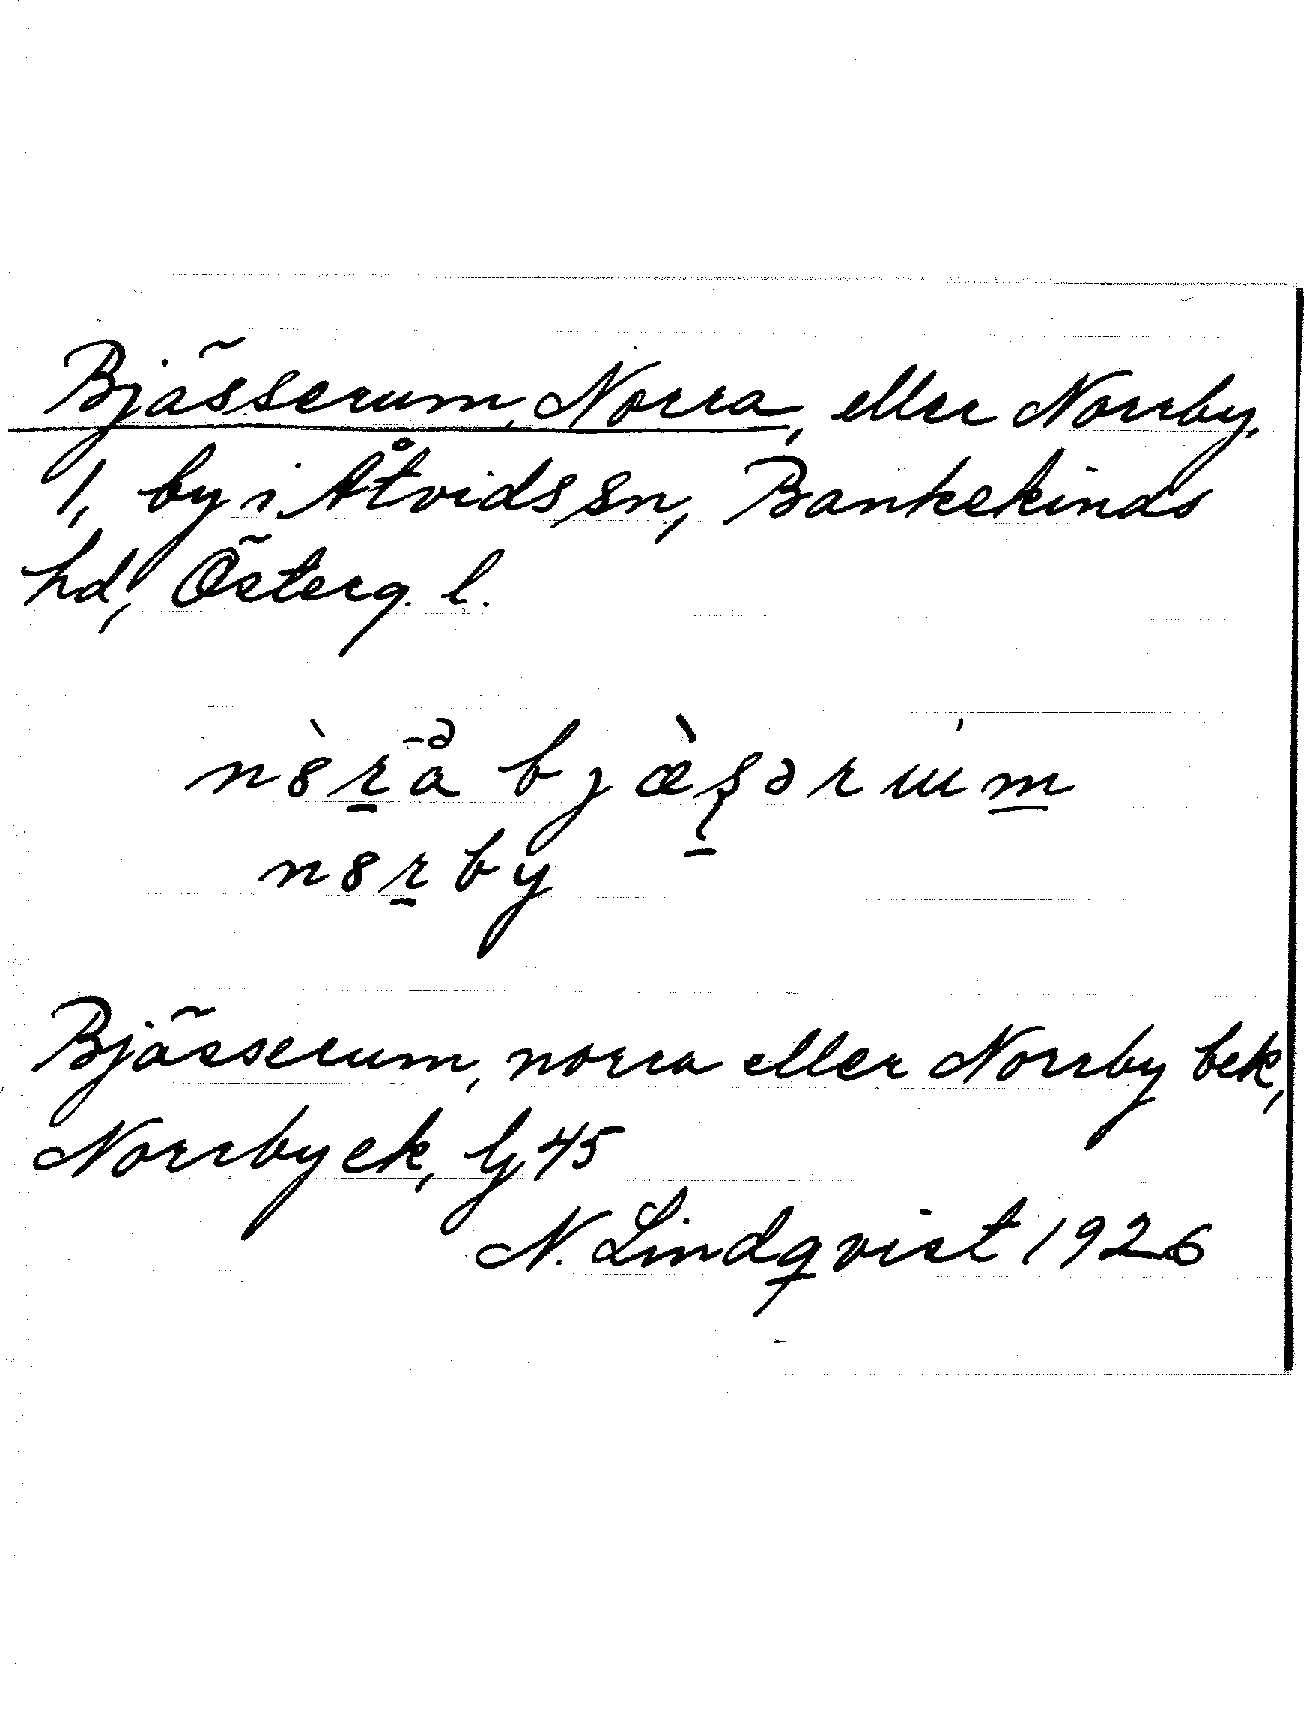 Bjässerum, Norra, eller Norrby,
1, by i Åtvids sn, Bankekinds
hd, Österg. l.
n bjæ̀sərum
by
Bjässerum, norra eller Norrby bek,
Norrby ek, Gj 45
N. Lindqvist 1926